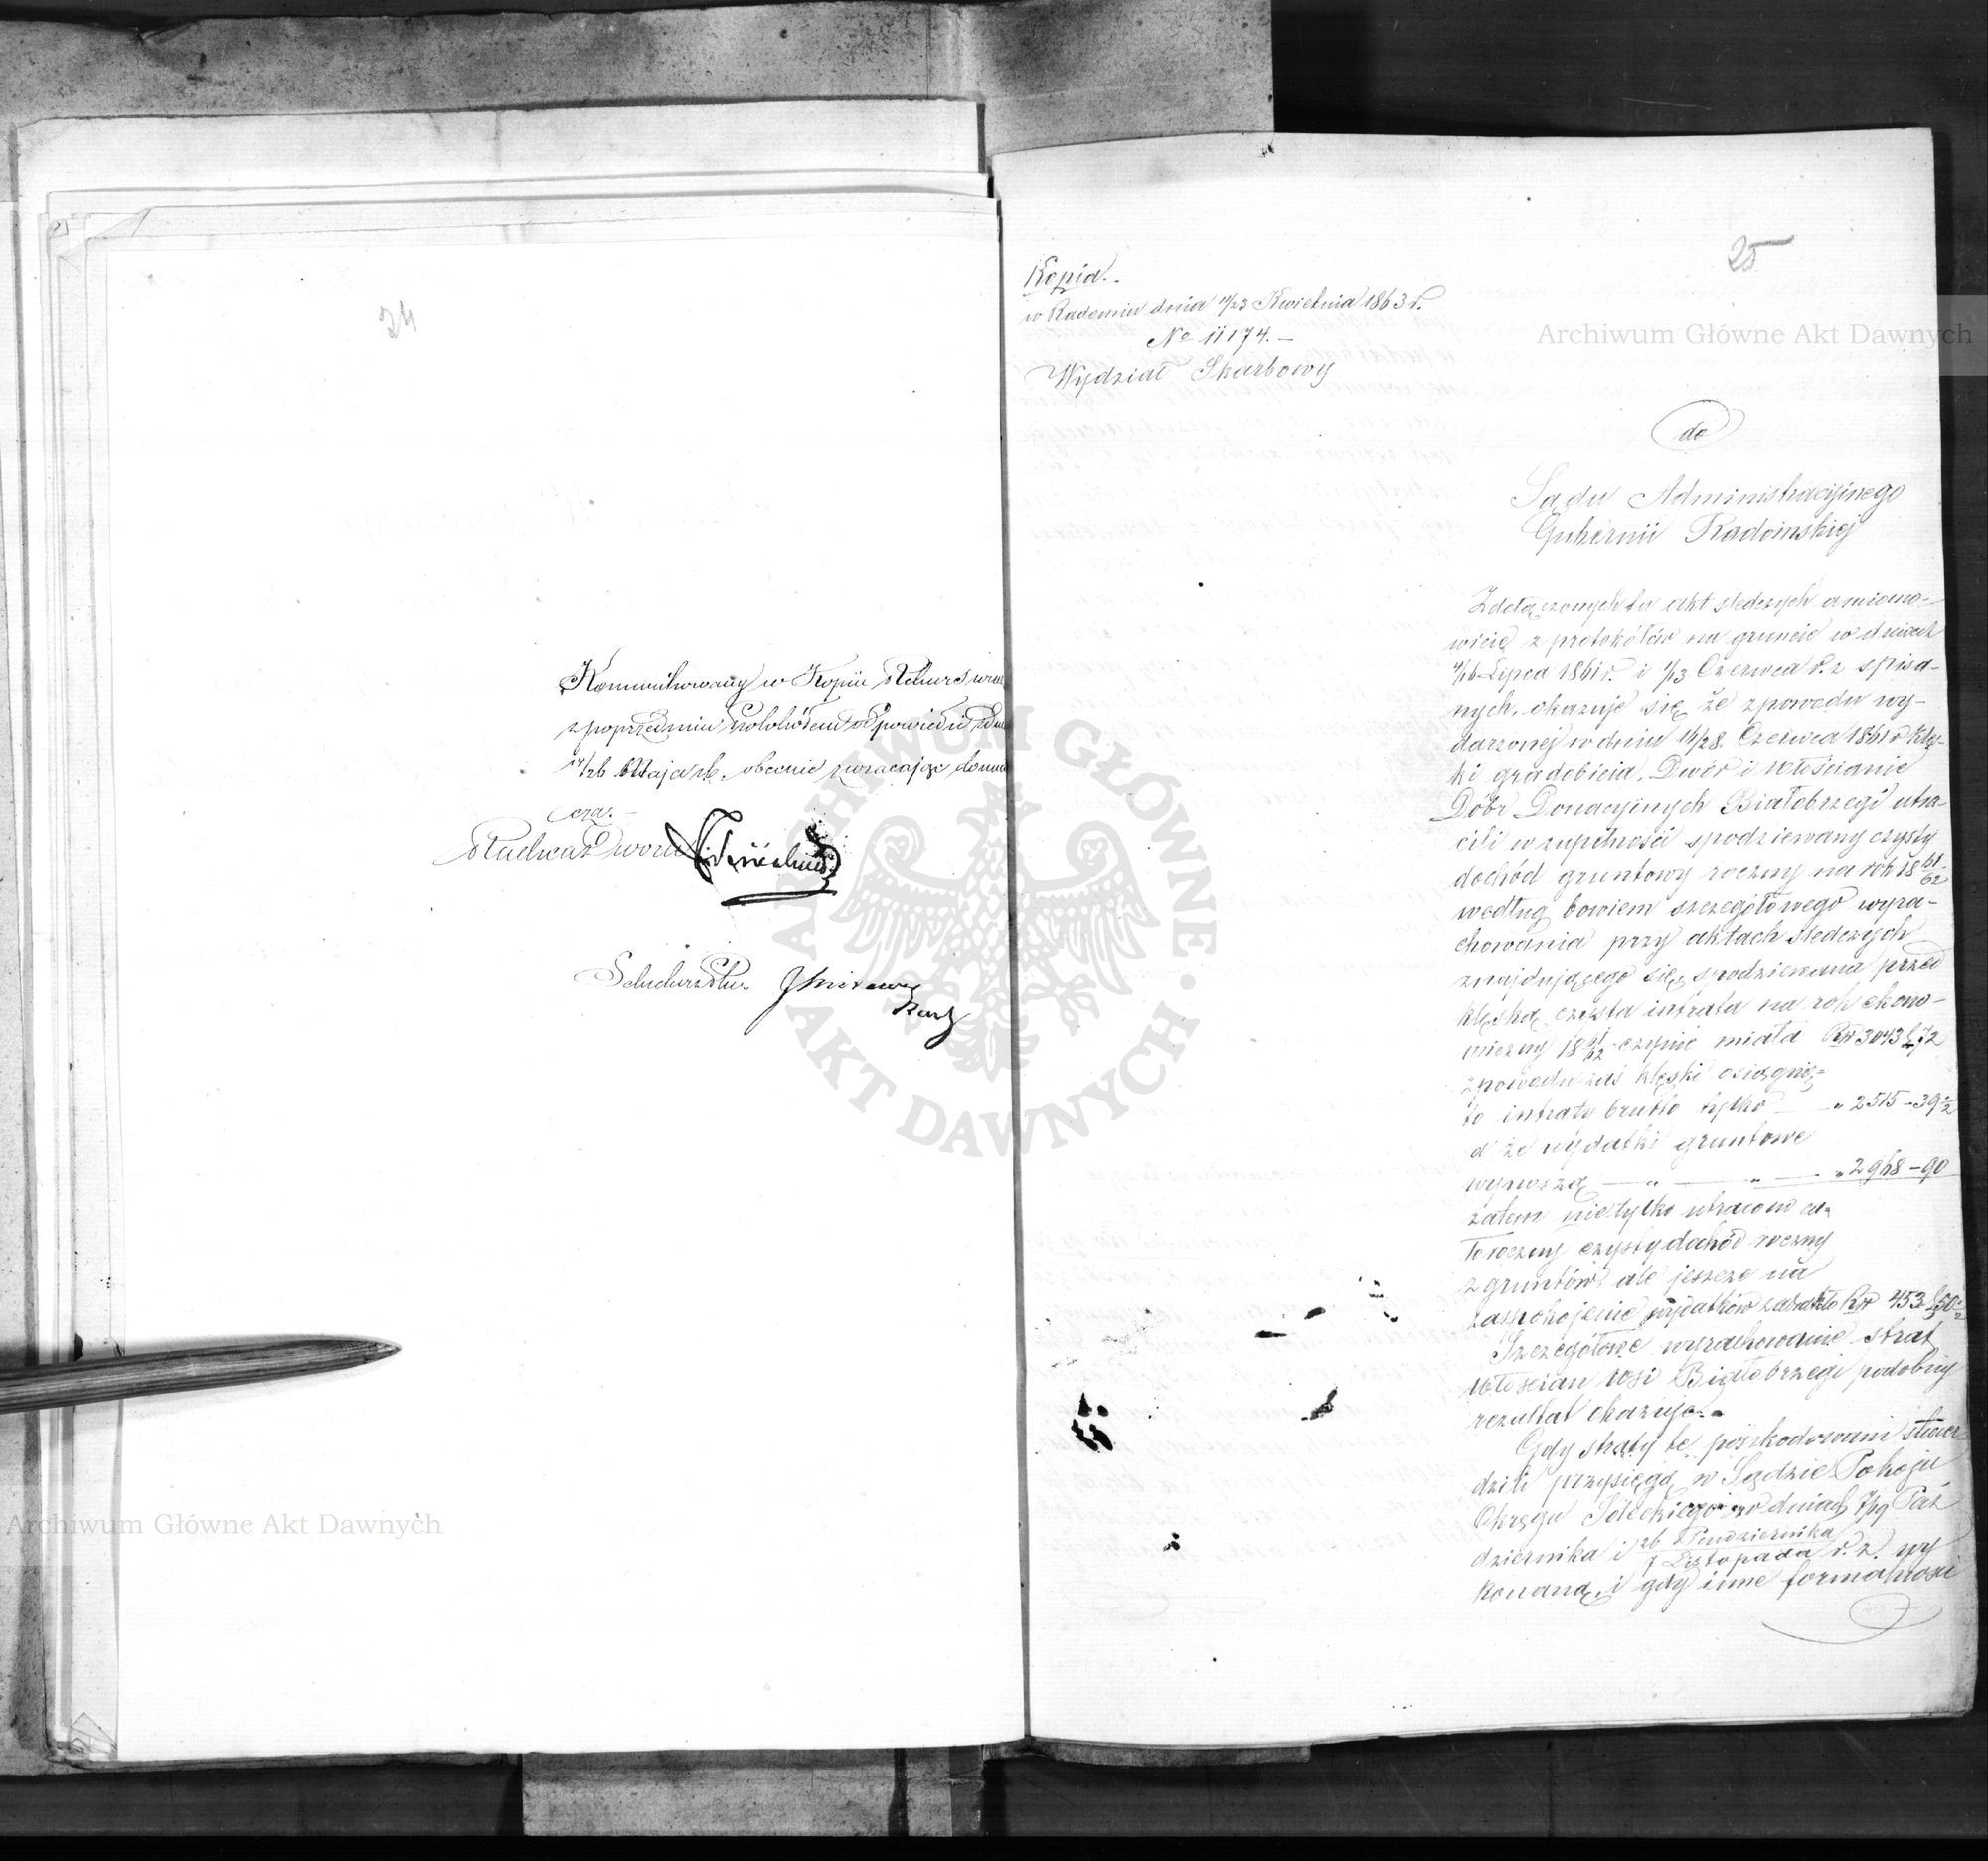 24
Kommunikowany w Kopii Rekurs wraz
z poprzednim
14/26 Maja rb. obecnie zwracając
Radca Dworu
Sekretarz
25
Kopia.
w Radomiu dnia 11/23 Kwietnia 1863 r.
No 11174.
Wydział Skarbowy
do
Sądu Administracyjnego
Gubernii Radomskiej
Z dołączonych tu akt śledczych a miano-
wicie z protokółów na gruncie w dniach
4/16 Lipca 1861 r. i 1/13 Czerwca r. z. spisa-
nych, okazuje się że z powodu wy-
darzonej w dniu 16/28 Czerwca 1861 r. klęs-
ki gradobicia, Dwór i Włościanie
Dóbr Donacyjnych Białobrzegi utra-
cili w zupełności spodziewany czysty
dochód gruntowy roczny na rok 1861/62
według bowiem szczegółowego wyra-
chowania przy aktach śledczych
znajdującego się, spodziewana przed
klęską czysta intrata na rok ekono-
miczny 1861/62 czynić miała Rsr 3043 k 72
z powodu zaś klęski osiągnię-
to intraty brutto tylko — „ 2515 - 39 1/2
a że wydatki gruntowe
wynoszą — „ — „ — „ 2968 - 90
zatem nietylko utracono ca-
łoroczny czysty dochód roczny
z gruntów ale jeszcze na
zaspokojenie wydatków zabrakło Rsr 453 k 50 1/2
Szczegółowe wyrachowanie strat
włościan wsi Białobrzegi podobny
rezultat okazuje.
Gdy straty te poszkodowani stwier-
dzili przysięgą w Sądzie Pokoju
Okręgu Soleckiego w dniach 7/19 Paź
dziernika i 26 Października / 7 Listopada r. z. wy
konaną, i gdy inne formalności
Archiwum Główne Akt Dawnych
Archiwum Główne Akt Dawnych
ARCHIWUM GŁÓWNE AKT DAWNYCH